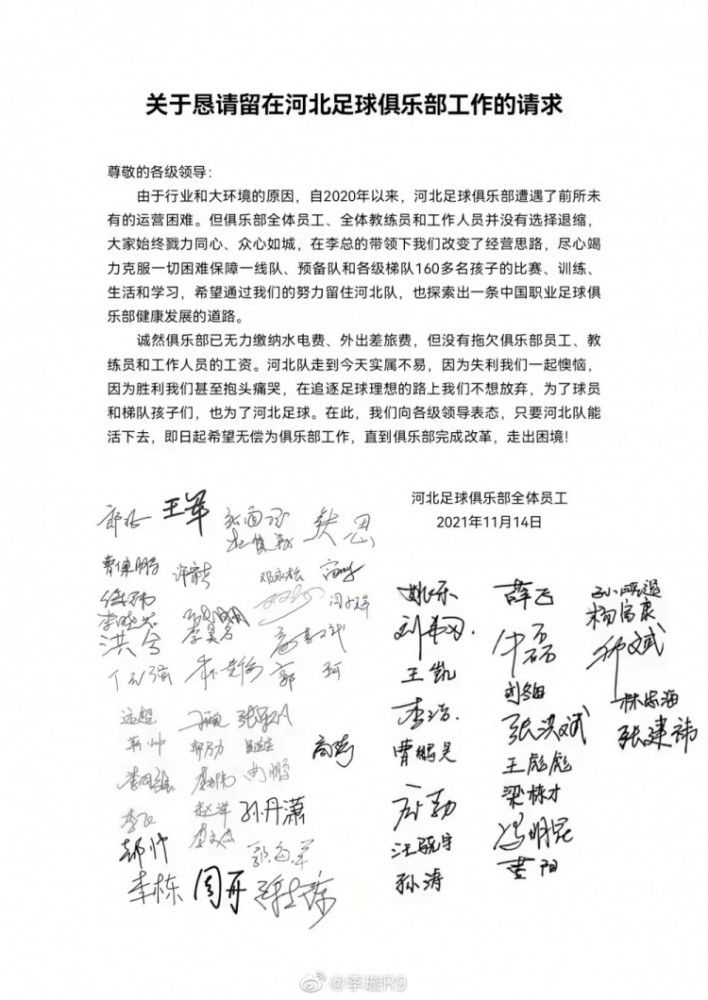 关于恳请留在河北足球俱乐部工作的请求
尊敬的各级领导：
由于行业和大环境的原因，自2020年以来，河北足球俱乐部遭遇了前所未
有的运营困难。但俱乐部全体员工、全体教练员和工作人员并没有选择退缩，
大家始终戮力同心、众心如城，在李总的带领下我们改变了经营思路，尽心竭
力克服一切困难保障一线队、预备队和各级梯队160多名孩子的比赛、训练、
生活和学习，希望通过我们的努力留住河北队，也探索出一条中国职业足球俱
乐部健康发展的道路。
诚然俱乐部已无力缴纳水电费、外出差旅费，但没有拖欠俱乐部员工、教
练员和工作人员的工资。河北队走到今天实属不易，因为失利我们一起懊恼，
因为胜利我们甚至抱头痛哭，在追逐足球理想的路上我们不想放弃，为了球员
和梯队孩子们，也为了河北足球。在此，我们向各级领导表态，只要河北队能
活下去，即日起希望无偿为俱乐部工作，直到俱乐部完成改革，走出困境！
河北足球俱乐部全体员工
2021年11月14日
王军
洪兮
郭珂
远超
高奇
孙丹潇
郝帅
李栋
周开
姚乐
王凯
李浩
曹鹏昊
孙涛
薛飞
牛磊
张洪斌
王彪彪
梁栋才
冯明昆
黄阳
杨富康
林忠海
张建祎
@李璇R9